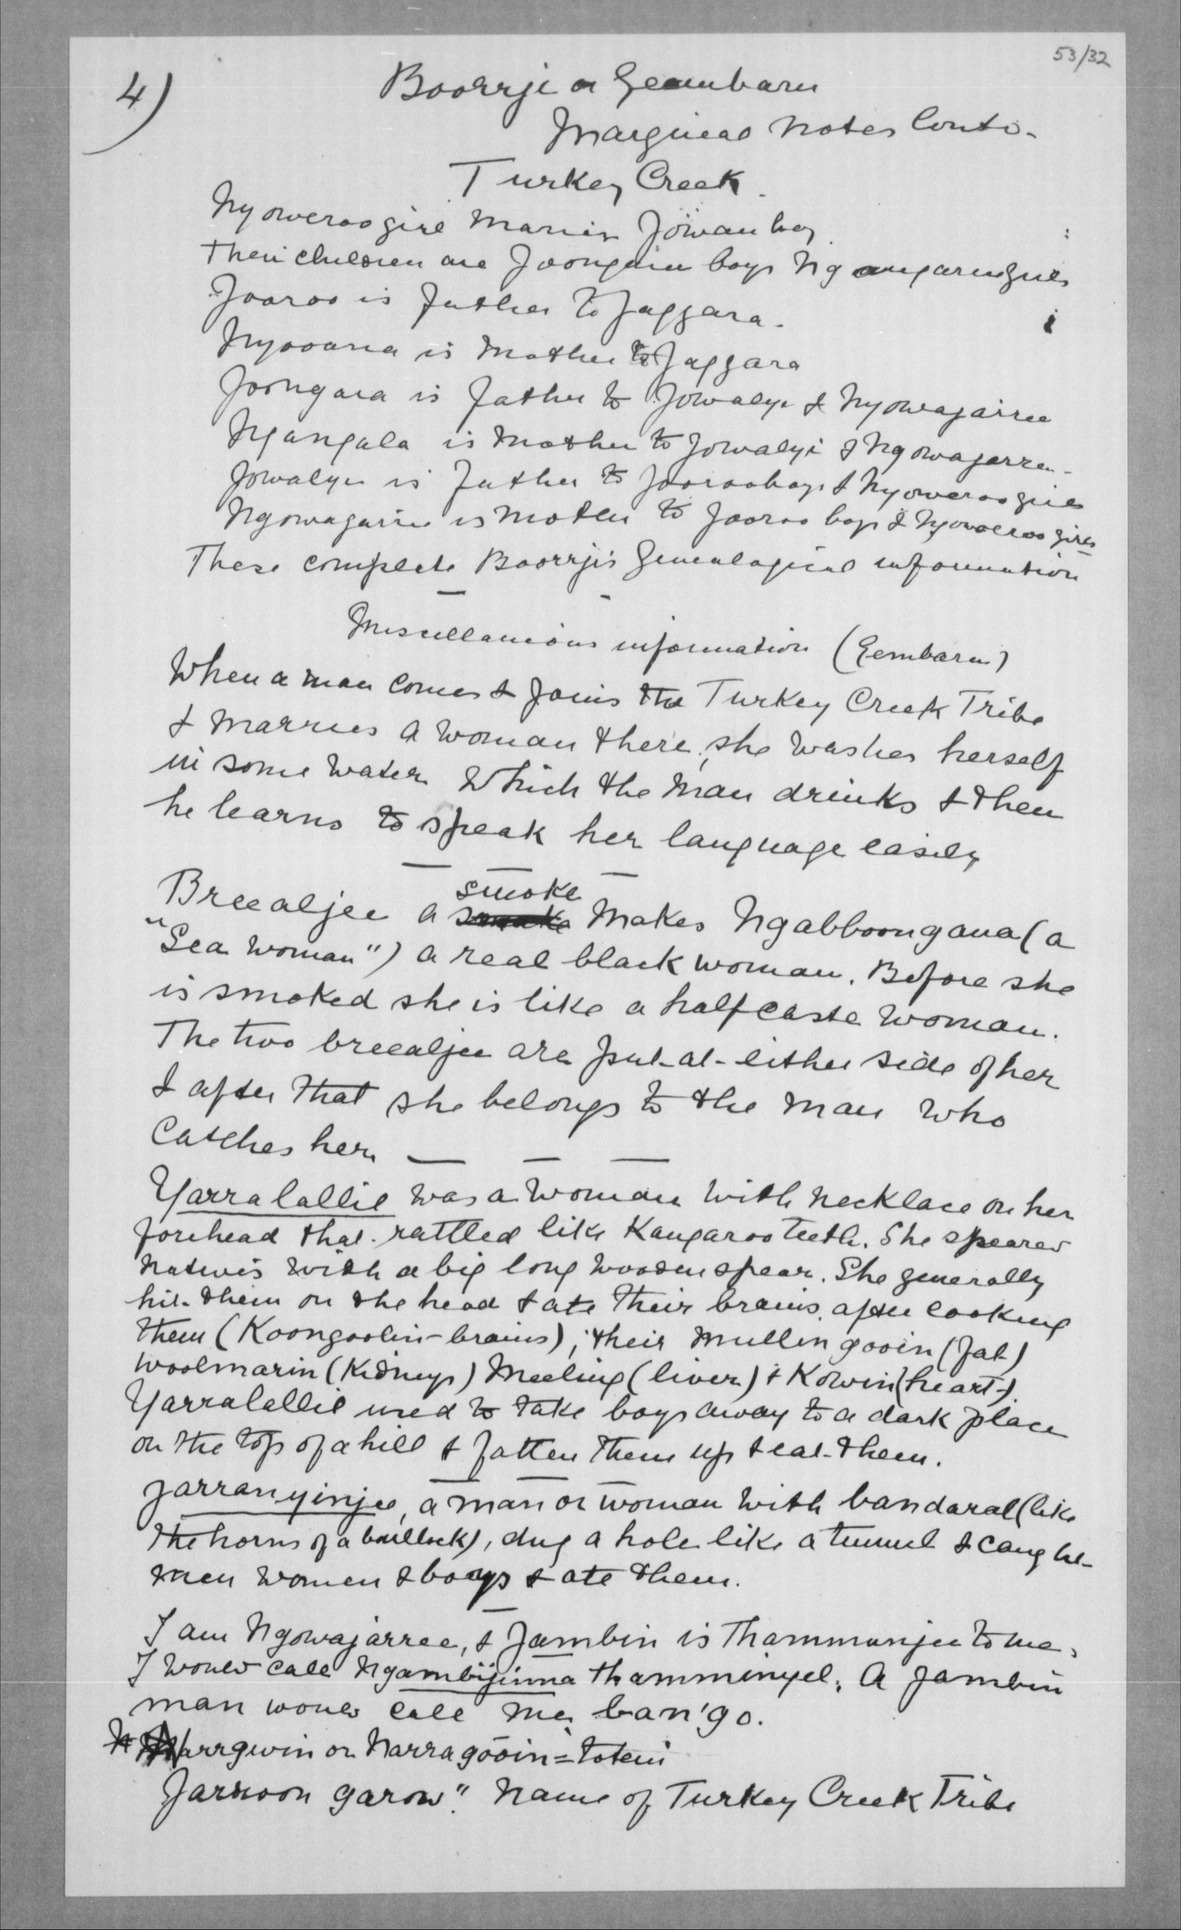 53/32
4)
Boorrji or Geembarn
Marginal Notes Contd.
Turkey Creek.
Nyoweroo girl marries Jowan boy.
Their children are Joongara boys Ngangaru girls
Jooroo is father to Jaggara.
Nyooana is mother to Jaggara
Joongara is father to Jowalyi & Nyowajarree
Ngangala is mother to Jowalyi & Ngowajarree
Jowalyi is father to Jooroo boys & Nyoweroo girls
Ngowagarrie is mother to Jooroo boys & Nyoweroo girls
These complete Boorrji's genealogical information
Miscellaneous information (Gembarn)
When a man comes & joins the Turkey Creek Tribe
& marries a woman there, she washes herself
in some water which the man drinks & then
he learns to speak her language easily
Breealjee a smoke makes Ngabboongana (a
"Sea Woman") a real black woman. Before she
is smoked she is like a half caste woman.
The two breealjee are put at either side of her
& after that she belongs to the man who
catches her.
Yarralallie was a woman with necklace on her
forehead that rattled like Kangaroo teeth. She speared
natives with a big long wooden spear. She generally
hit them on the head & ate their brains, after cooking
them (Koongoolin - brains); their mullin gooin (fat)
woolmarin (Kidneys) Meeling (liver) & Kowin (heart).
Yarralallie used to take boys away to a dark place
on the top of a hill & fatten them up & eat them.
Jarranyinjee, a man or woman with bandaral (like
the horns of a bullock), dug a hole like a tunnel & caught
men women & boys & ate them.
I am Ngowajarree, & Jambin is Thammunjee to me,
I would call Ngambijinna thamminyel. A Jambin
man would call me ban'go.
Narrgwin or Narragooin = totem
Jarroon garow". Name of Turkey Creek Tribe